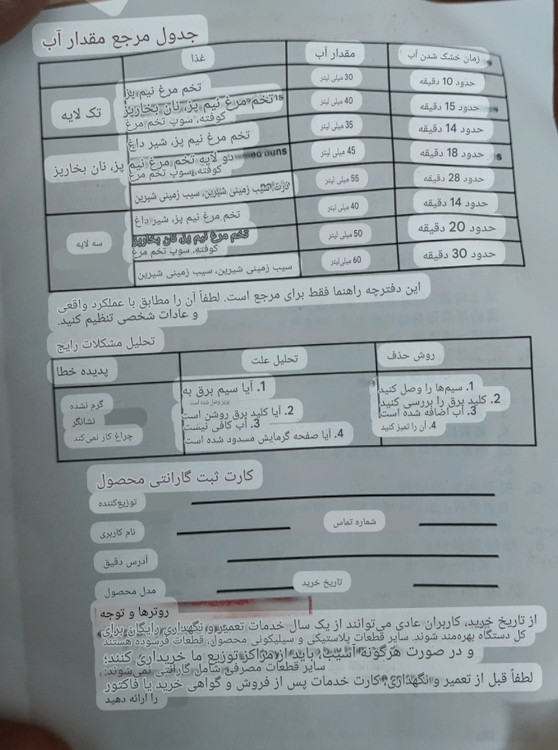 جدول مرجع مقدار آب
غذا
مقدار آب
زمان خشک شدن آب
تک لایه
تخم مرغ نیم پز
30 میلی لیتر
حدود 10 دقیقه
تخم مرغ نیم پز، نان بخارپز
کوفته، سوپ تخم مرغ
40 میلی لیتر
حدود 15 دقیقه
تخم مرغ نیم پز، شیر داغ
35 میلی لیتر
حدود 14 دقیقه
دو لایه تخم مرغ نیم پز، نان بخارپز
کوفته، سوپ تخم مرغ
45 میلی لیتر
حدود 18 دقیقه
سیب زمینی شیرین، سیب زمینی شیرین
55 میلی لیتر
حدود 28 دقیقه
سه لایه
تخم مرغ نیم پز، شیر داغ
40 میلی لیتر
حدود 14 دقیقه
تخم مرغ نیم پز، نان بخارپز
کوفته، سوپ تخم مرغ
50 میلی لیتر
حدود 20 دقیقه
سیب زمینی شیرین، سیب زمینی شیرین
60 میلی لیتر
حدود 30 دقیقه
این دفترچه راهنما فقط برای مرجع است. لطفاً آن را مطابق با عملکرد واقعی
و عادات شخصی تنظیم کنید.
تحلیل مشکلات رایج
پدیده خطا
تحلیل علت
روش حذف
گرم نشده
نشانگر
چراغ کار نمی‌کند
1. آیا سیم برق به
پریز وصل شده است
2. آیا کلید برق روشن است
3. آب کافی نیست
4. آیا صفحه گرمایش مسدود شده است
1. سیم‌ها را وصل کنید
2. کلید برق را بررسی کنید
3. آب اضافه شده است
4. آن را تمیز کنید
کارت ثبت گارانتی محصول
توزیع‌کننده
نام کاربری
شماره تماس
آدرس دقیق
مدل محصول
تاریخ خرید
روترها و توجه
از تاریخ خرید، کاربران عادی می‌توانند از یک سال خدمات تعمیر و نگهداری رایگان برای
کل دستگاه بهره‌مند شوند. سایر قطعات پلاستیکی و سیلیکونی محصول، قطعات فرسوده هستند
و در صورت هرگونه آسیب، باید از مراکز توزیع ما خریداری کنند؛
سایر قطعات مصرفی شامل گارانتی نمی‌شوند؛
لطفاً قبل از تعمیر و نگهداری، کارت خدمات پس از فروش و گواهی خرید یا فاکتور
را ارائه دهید